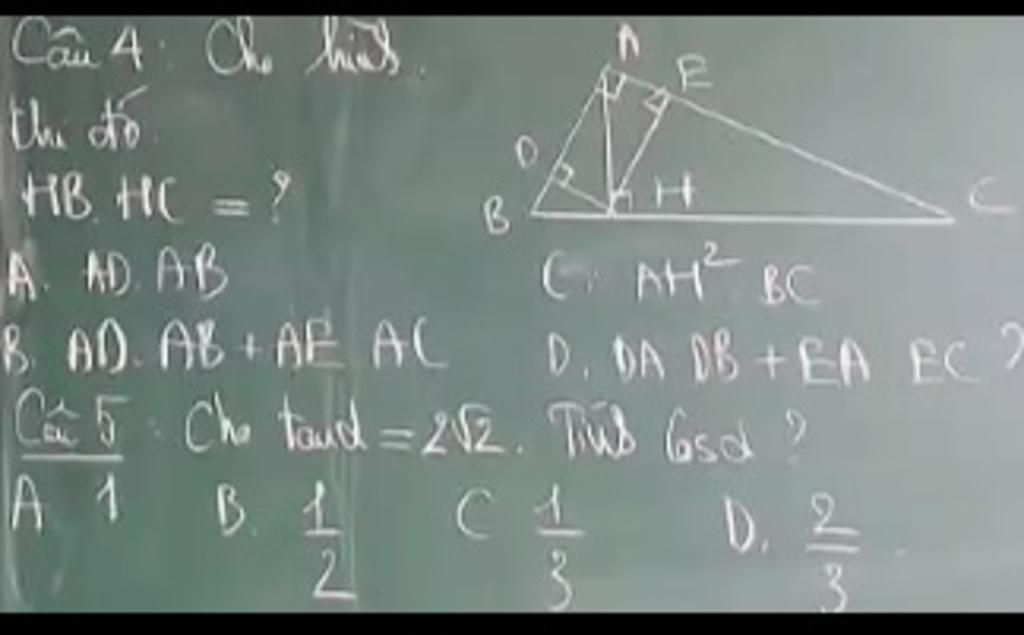 Câu 4: Cho hình.
thì đó
HB. HC = ?
A
E
D
B
H
C
A. AD. AB
C. AH² BC
B. AD. AB + AE AC
D. DA DB + EA EC ?
Câu 5: Cho tanα = 2√2. Tính Cosα ?
A 1
B. 1/2
C 1/3
D. 2/3